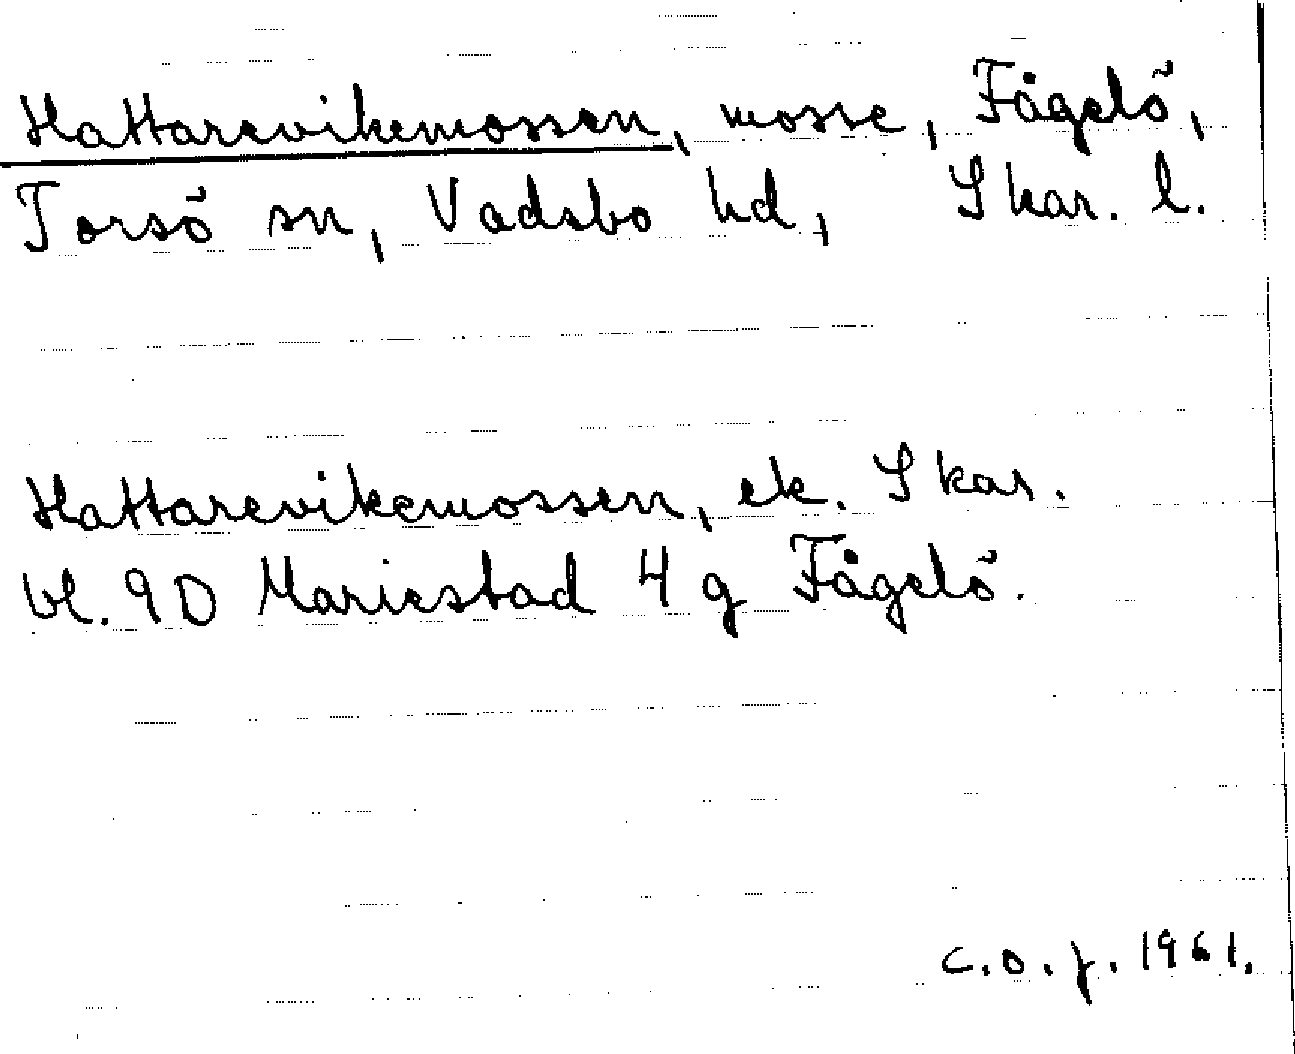 Hattarevikemossen, mosse, Fågelö,
Torsö sn, Vadsbo hd, Skar. l.
Hattarevikemossen, ek. Skar.
bl. 9D Mariestad 4g Fågelö.
C.O.F. 1961.